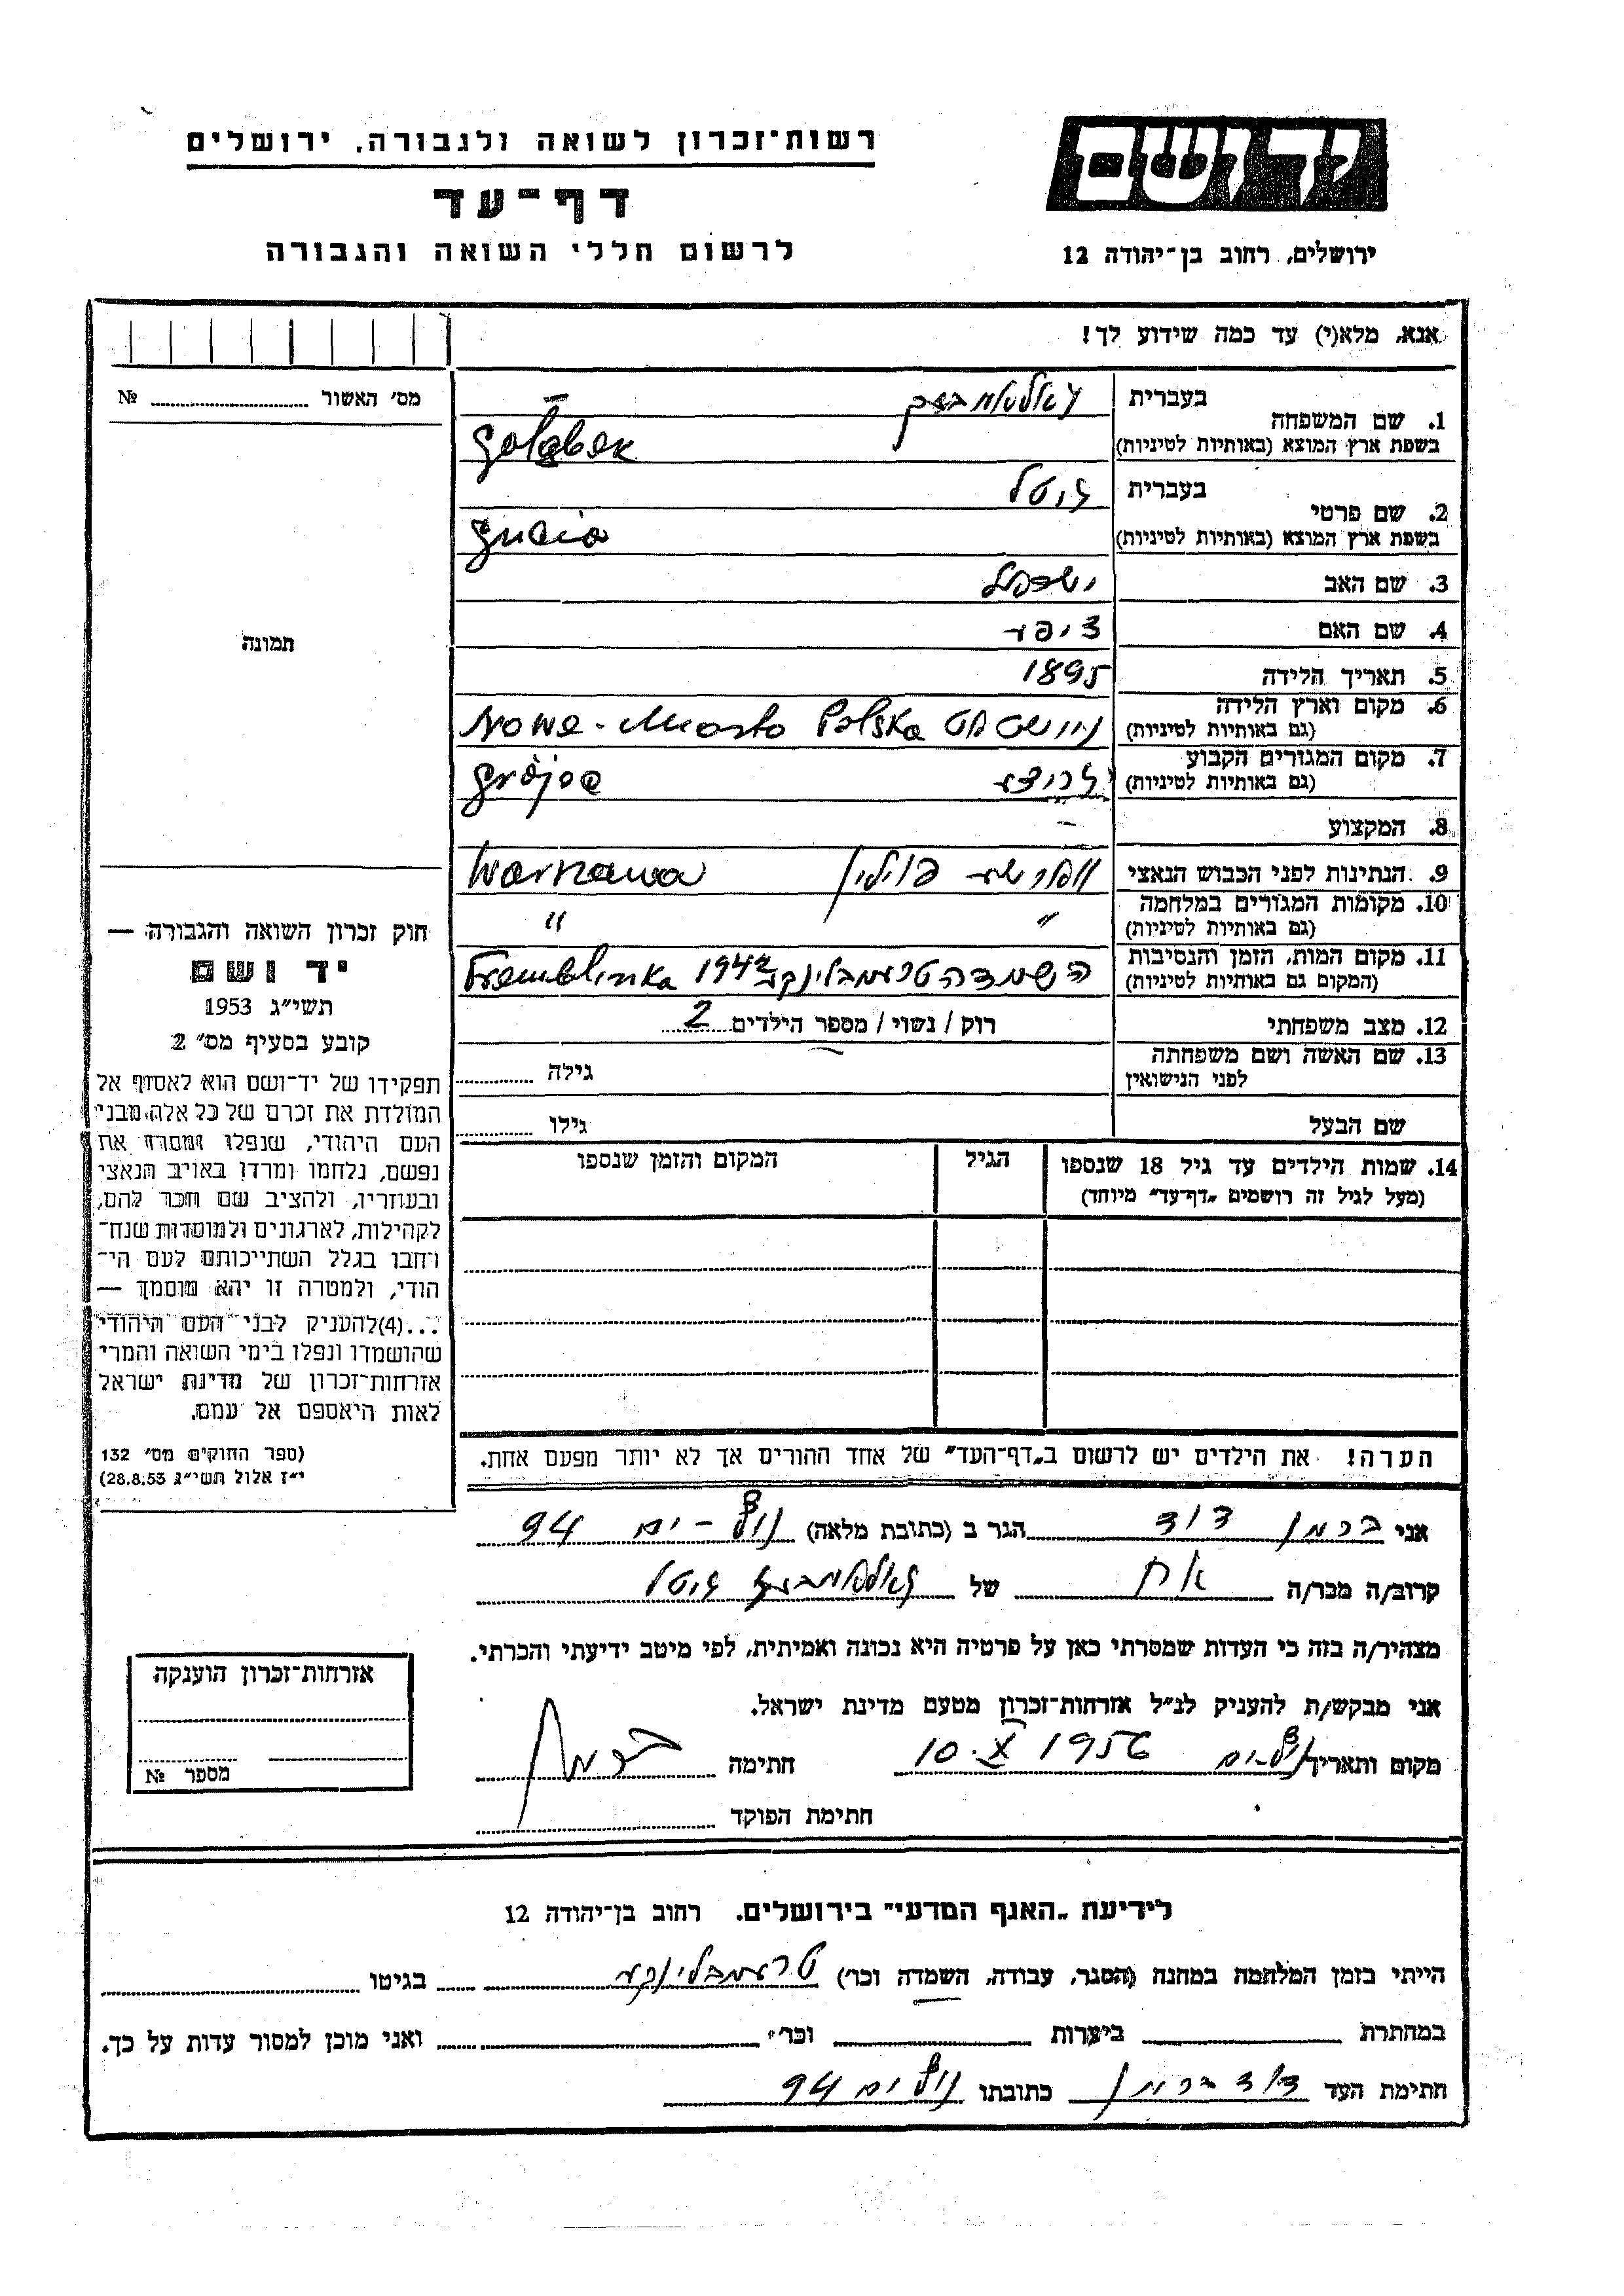 רשות־זכרון לשואה ולגבורה, ירושלים
דף־עד
לרשום חללי השואה והגבורה
ידושם
ירושלים, רחוב בן־יהודה 12
אנא, מלא(י) עד כמה שידוע לך!
מס׳ האשור № 
1. שם המשפחה בעברית
בשפת ארץ המוצא (באותיות לטיניות) Gołąbek
2. שם פרטי בעברית גיטל
בשפת ארץ המוצא (באותיות לטיניות) Gucia
3. שם האב
4. שם האם ציפר
5. תאריך הלידה 1895
6. מקום וארץ הלידה
(גם באותיות לטיניות) Nowe-Miasto Polska
7. מקום המגורים הקבוע
(גם באותיות לטיניות) Grójec
8. המקצוע –
9. הנתינות לפני הכבוש הנאצי פוילין Warszawa
10. מקומות המגורים במלחמה
(גם באותיות לטיניות) " "
11. מקום המות, הזמן והנסיבות
(המקום גם באותיות לטיניות) השמדה טרעמבלינקע 1942 Tremblinka
12. מצב משפחתי רוק / נשוי / מספר הילדים 2
13. שם האשה ושם משפחתה
לפני הנישואין גילה
שם הבעל גילו
14. שמות הילדים עד גיל 18 שנספו הגיל המקום והזמן שנספו
(מעל לגיל זה רושמים „דף־עד״ מיוחד)
הערה! את הילדים יש לרשום ב„דף־העד״ של אחד ההורים אך לא יותר מפעם אחת.
תמונה
חוק זכרון השואה והגבורה —
יד ושם
תשי״ג 1953
קובע בסעיף מס׳ 2
תפקידו של יד־ושם הוא לאסוף אל
המולדת את זכרם של כל אלה מבני
העם היהודי, שנפלו ומסרו את
נפשם, נלחמו ומרדו באויב הנאצי
ובעוזריו, ולהציב שם וזכר להם,
לקהילות, לארגונים ולמוסדות שנח־
רבו בגלל השתייכותם לעם הי־
הודי, ולמטרה זו יהא מוסמך —
...(4)להעניק לבני העם היהודי
שהושמדו ונפלו בימי השואה והמרי
אזרחות־זכרון של מדינת ישראל
לאות היאספם אל עמם.
(ספר החוקים מס׳ 132
י״ז אלול תשי״ג 28.8.53)
אני ברמן דוד הגר ב (כתובת מלאה) ים 94
קרוב/ה מכר/ה אח של גיטל
מצהיר/ה בזה כי העדות שמסרתי כאן על פרטיה היא נכונה ואמיתית, לפי מיטב ידיעתי והכרתי.
אני מבקש/ת להעניק לנ״ל אזרחות־זכרון מטעם מדינת ישראל.
מקום ותאריך 10.X 1956 חתימה ברמן
חתימת הפוקד
אזרחות־זכרון הוענקה
מספר №
לידיעת „האגף המדעי״ בירושלים. רחוב בן־יהודה 12
הייתי בזמן המלחמה במחנה (הסגר, עבודה, השמדה וכו׳) טרעמבלינקע בגיטו
במחתרת ביערות וכו׳ ואני מוכן למסור עדות על כך.
חתימת העד דוד ברמן כתובתו ים 94